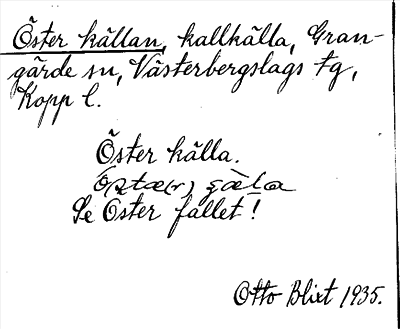 Öster källan, kallkälla, Gran-
gärde sn, Västerbergslags tg,
Kopp l.
Öster källa.
Se Öster fallet!
Otto Blixt 1935.